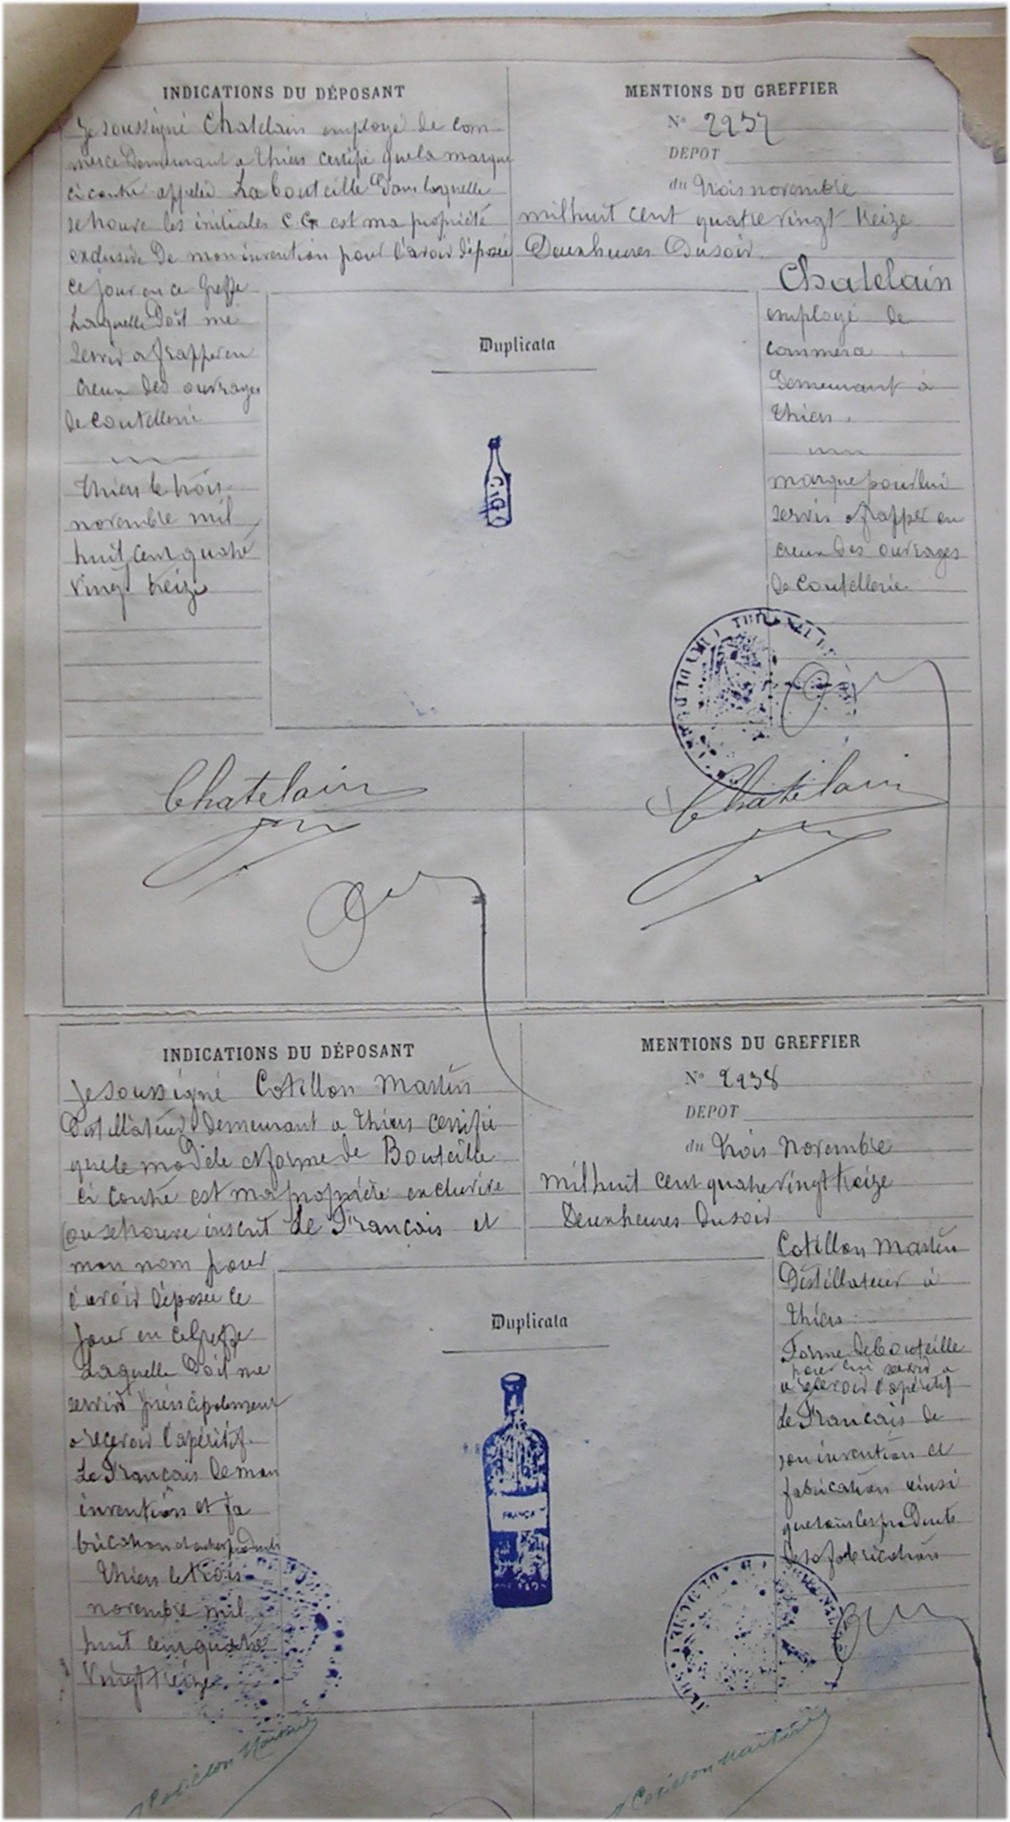 INDICATIONS DU DÉPOSANT
Je soussigné Chatelain employé de com-
merce Demeurant a Thiers certifie que la marque
ci contre appelée La bouteille Dans laquelle
se trouve les initiales C G est ma propriété
exclusive De mon invention pour l'avoir déposée
ce jour en ce Greffe
Laquelle Doit me
servir a frapper en
creux des ouvrages
de coutellerie
Thiers le trois
novembre mil
huit cent quatre
vingt treize
MENTIONS DU GREFFIER
N° 2237
DEPOT
du trois novembre
mil huit cent quatre vingt treize
Deux heures Du soir.
Chatelain
employé de
commerce
Demeurant à
Thiers.
marque pour lui
servir a frapper en
creux Des ouvrages
De coutellerie
Duplicata
C G
Chatelain
Chatelain
INDICATIONS DU DÉPOSANT
Je soussigné Cotillon Martin
Distillateur Demeurant a Thiers certifie
que le modèle et forme De Bouteille
Ci contre est ma propriété exclusive
(ou se trouve inscrit Le Français et
mon nom pour
l'avoir Déposée ce
jour en ce Greffe
Laquelle Doit me
servir principalement
a recevoir l'apéritif
Le Français De mon
invention et fa
brication et autres produits
Thiers le trois
novembre mil
huit cent quatre
Vingt treize
MENTIONS DU GREFFIER
N° 2238
DEPOT
du trois Novembre
mil huit cent quatre vingt treize
Deux heures Du soir
Cotillon Martin
Distillateur à
Thiers
Forme De bouteille
pour lui servir a
a recevoir l'apéritif
Le Français de
son invention et
fabrication ainsi
que tous les produits
De sa fabrication
Duplicata
FRANÇAIS
Cotillon Martin
Cotillon Martin